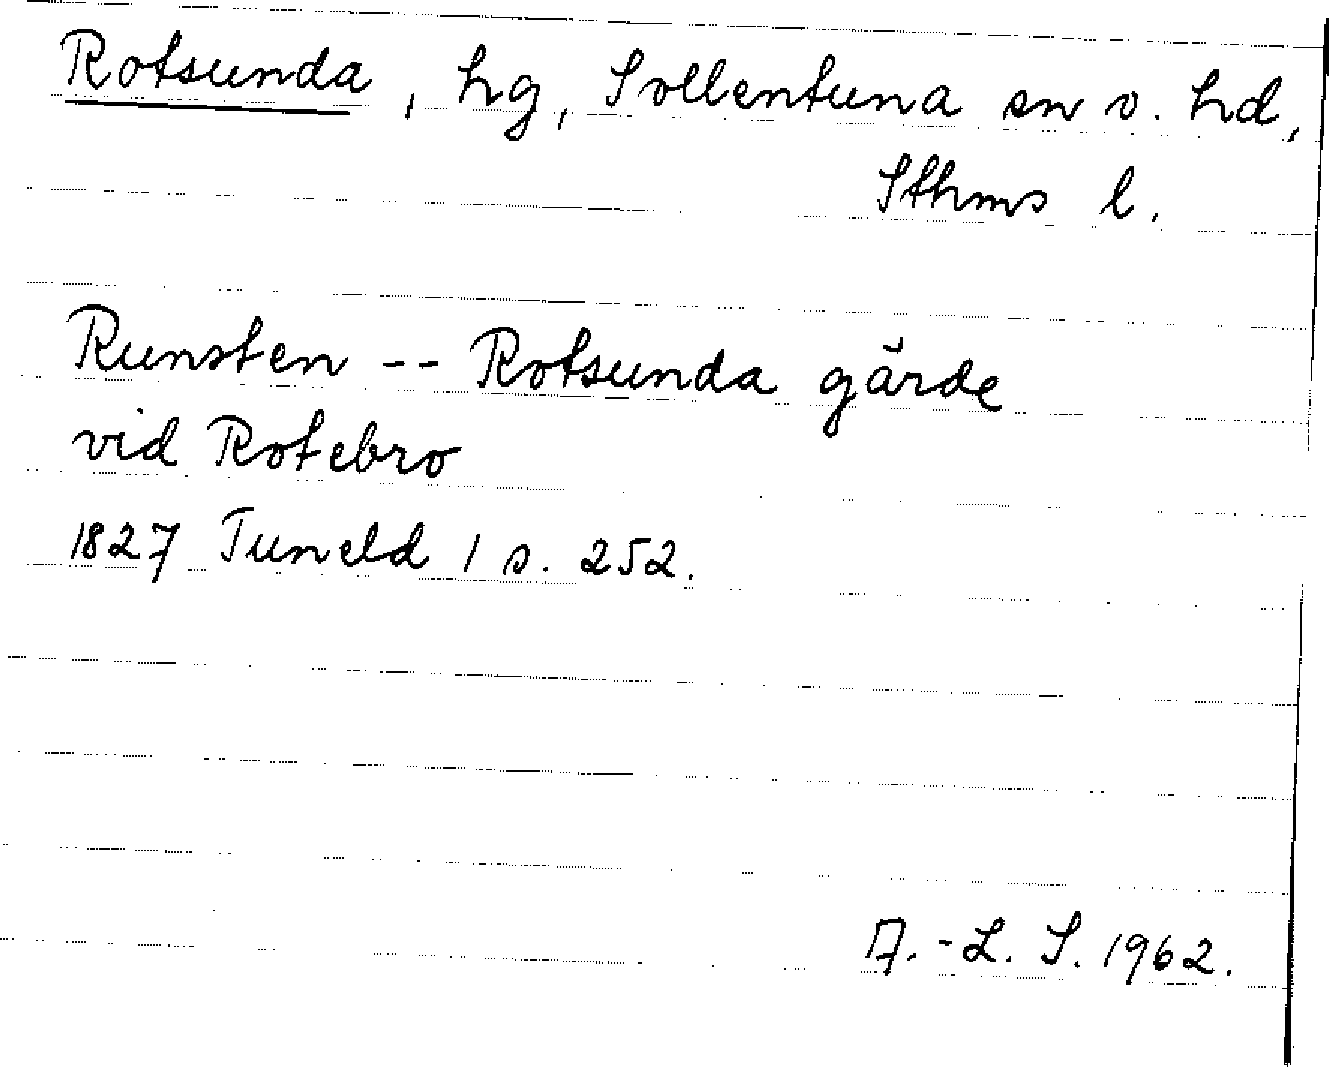 Rotsunda, hg, Sollentuna sn o. hd,
Sthms l.
Runsten -- Rotsunda gärde
vid Rotebro
1827 Tuneld 1 s. 252.
A.-L. S. 1962.